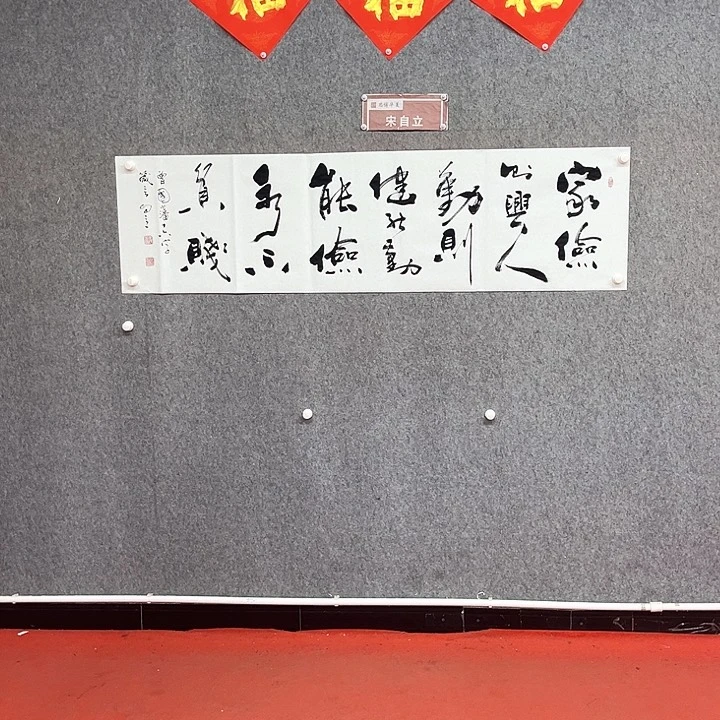 福
福
福
宋自立
家儉
則興人
勤則
健能勤
能儉
永不
貧賤
曾國藩